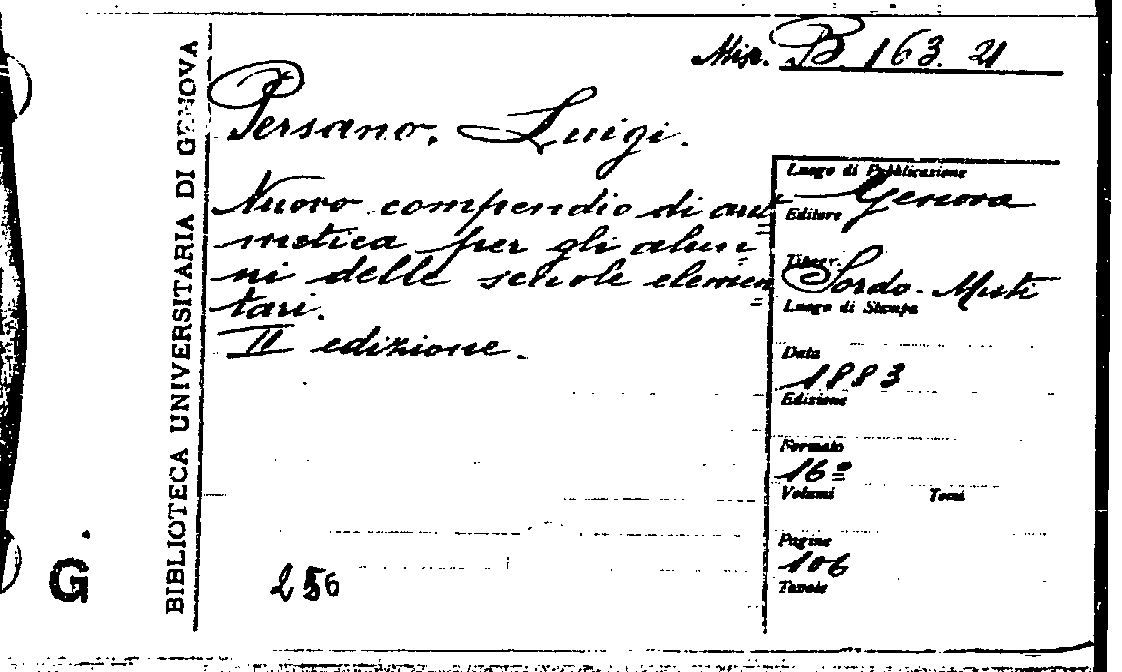 Misc. B. 163. 21
Persano, Luigi.
Nuovo compendio di arit=
metica per gli alun=
ni delle scuole elemen=
tari.
II edizione.
256
BIBLIOTECA UNIVERSITARIA DI GENOVA
G.
Luogo di Pubblicazione
Genova
Editore
Sordo-Muti
Luogo di Stampa
Data
1883
Edizione
Formato
16º
Volumi Tomi
Pagine
106
Tavole